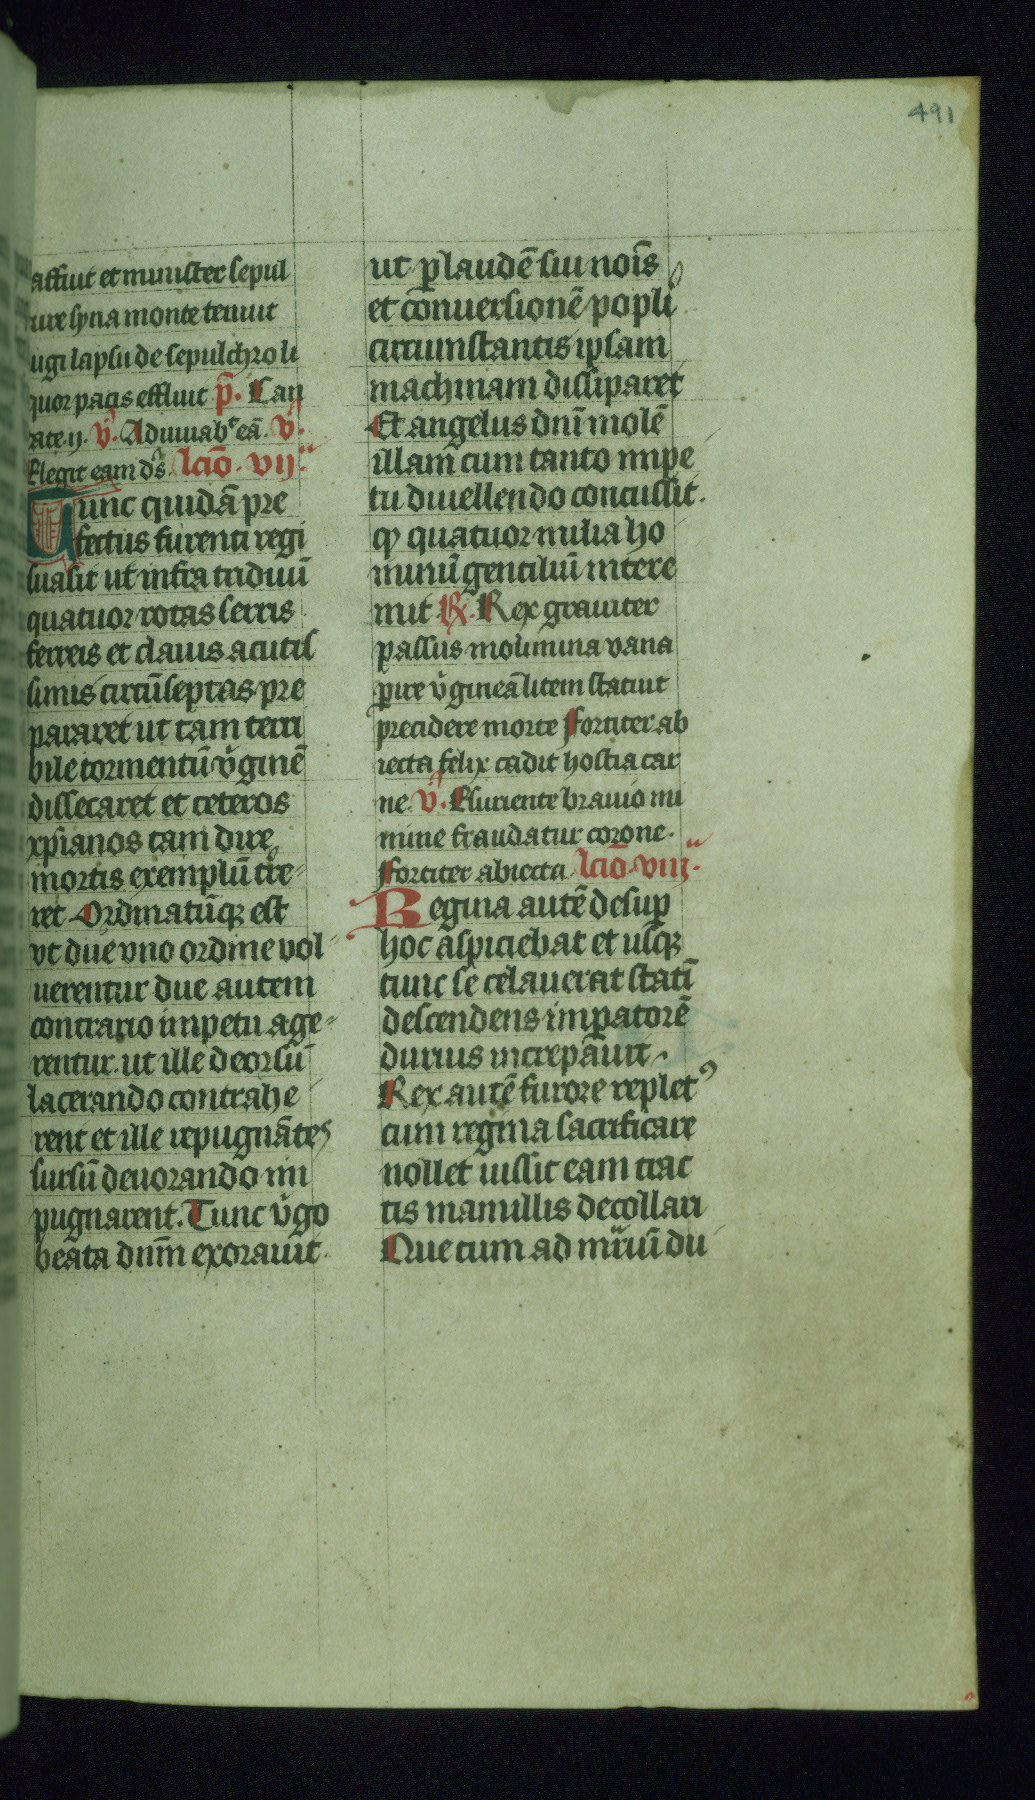 491
affuit et minister sepul
ture syna monte tenuit
ugi lapsu de sepulchro li
quor pacis effluit p̄. Can
tate .ij. v̄. Adiuuab᷑ eā. v̄.
Elegit eam ds̄. lcīo. vij.
Tunc quidā pre
fectus furenti regi
suasit ut infra triduū
quatuor rotas serris
ferreis et clauis acutis
simis circūseptas pre
pararet ut tam terri
bile tormentū v̄ginē
dissecaret et ceteros
xp̄ianos tam dire
mortis exemplū tre
ret Ordinatūq; est
vt due vno ordine vol
uerentur due autem
contrario impetu age
rentur. ut ille deorsū
lacerando contrahe
rent et ille repugnātes
sursū deuorando im
pugnarent. Tunc v̄go
beata dnm̄ exorauit
ut ꝓ laudē sui nois̄
et conuersionē popli
circumstantis ipsam
machinam dissiparet
Et angelus dnī molē
illam cum tanto impe
tu diuellendo concussit.
ꝙ quatuor milia ho
minū gentiliū intere
mit. R̄. Rex grauiter
passus molimina vana
perire v̄gineā litem statuit
precidere morte Fortiter ab
iecta felix cadit hostia car
ne. v̄. Esuriente brauio nu
mine fraudatur corone.
Fortiter abiecta. lcīo. viij.
Regina autē desuꝑ
hoc aspiciebat et usq;
tunc se celauerat statī
descendens imꝑatorē
durius increpauit.
Rex autē furore replet⁹
cum regina sacrificare
nollet iussit eam trac
tis mamillis decollari
Que cum ad mr̄iū du